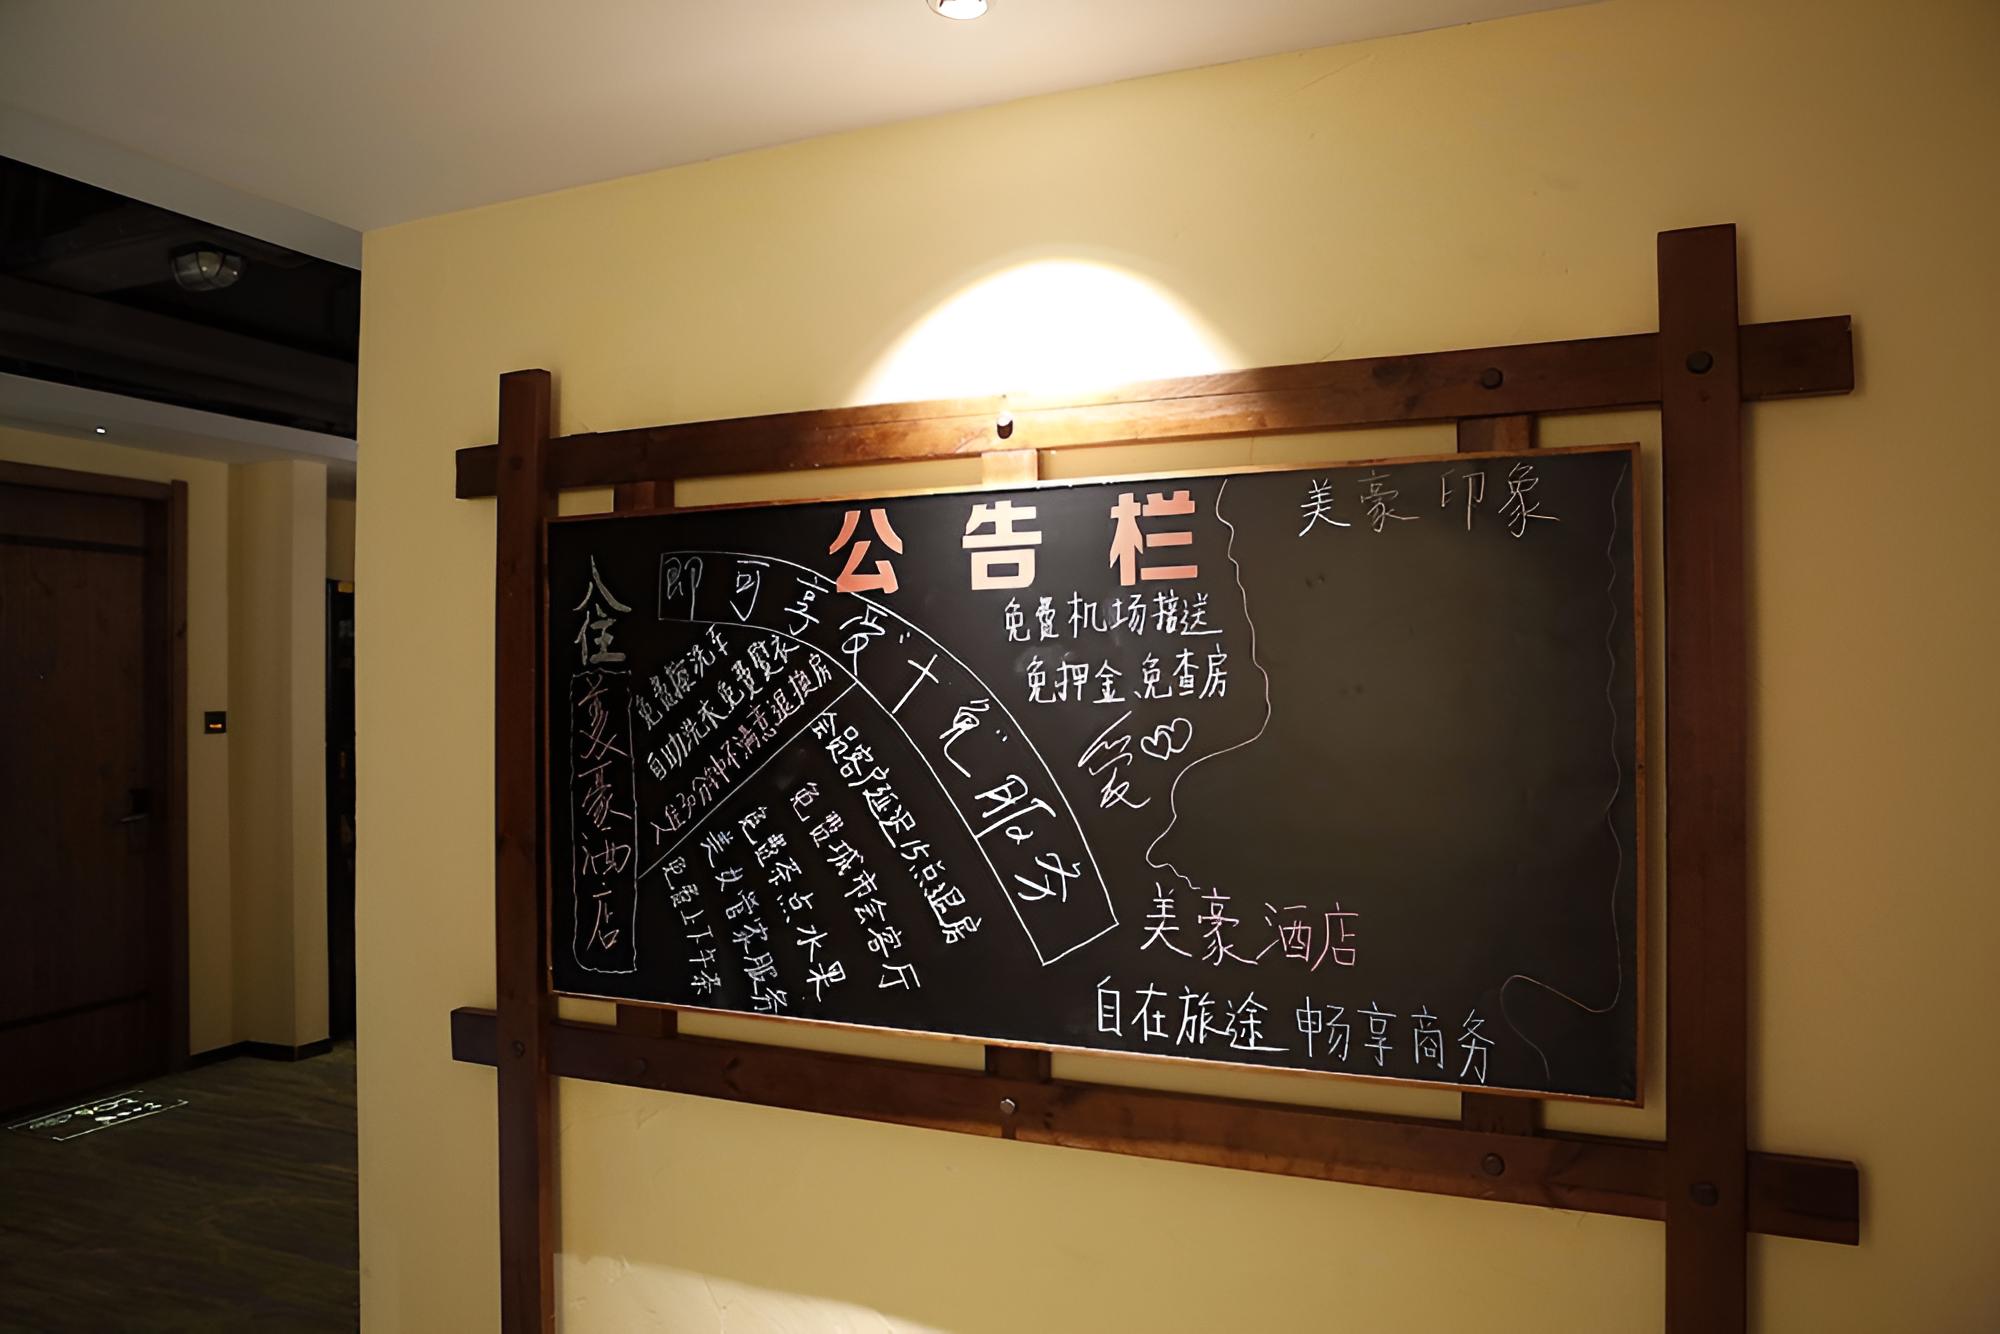 公告栏
入住
美豪酒店
即可享受"十免"服务
免费擦洗车
自助洗水免费熨衣
入住30分钟不满意退换房
会员客户延迟15点退房
免费城市会客厅
免费茶点水果
美女管家服务
免费上下午茶
免费机场接送
免押金、免查房
爱
美豪印象
美豪酒店
自在旅途 畅享商务